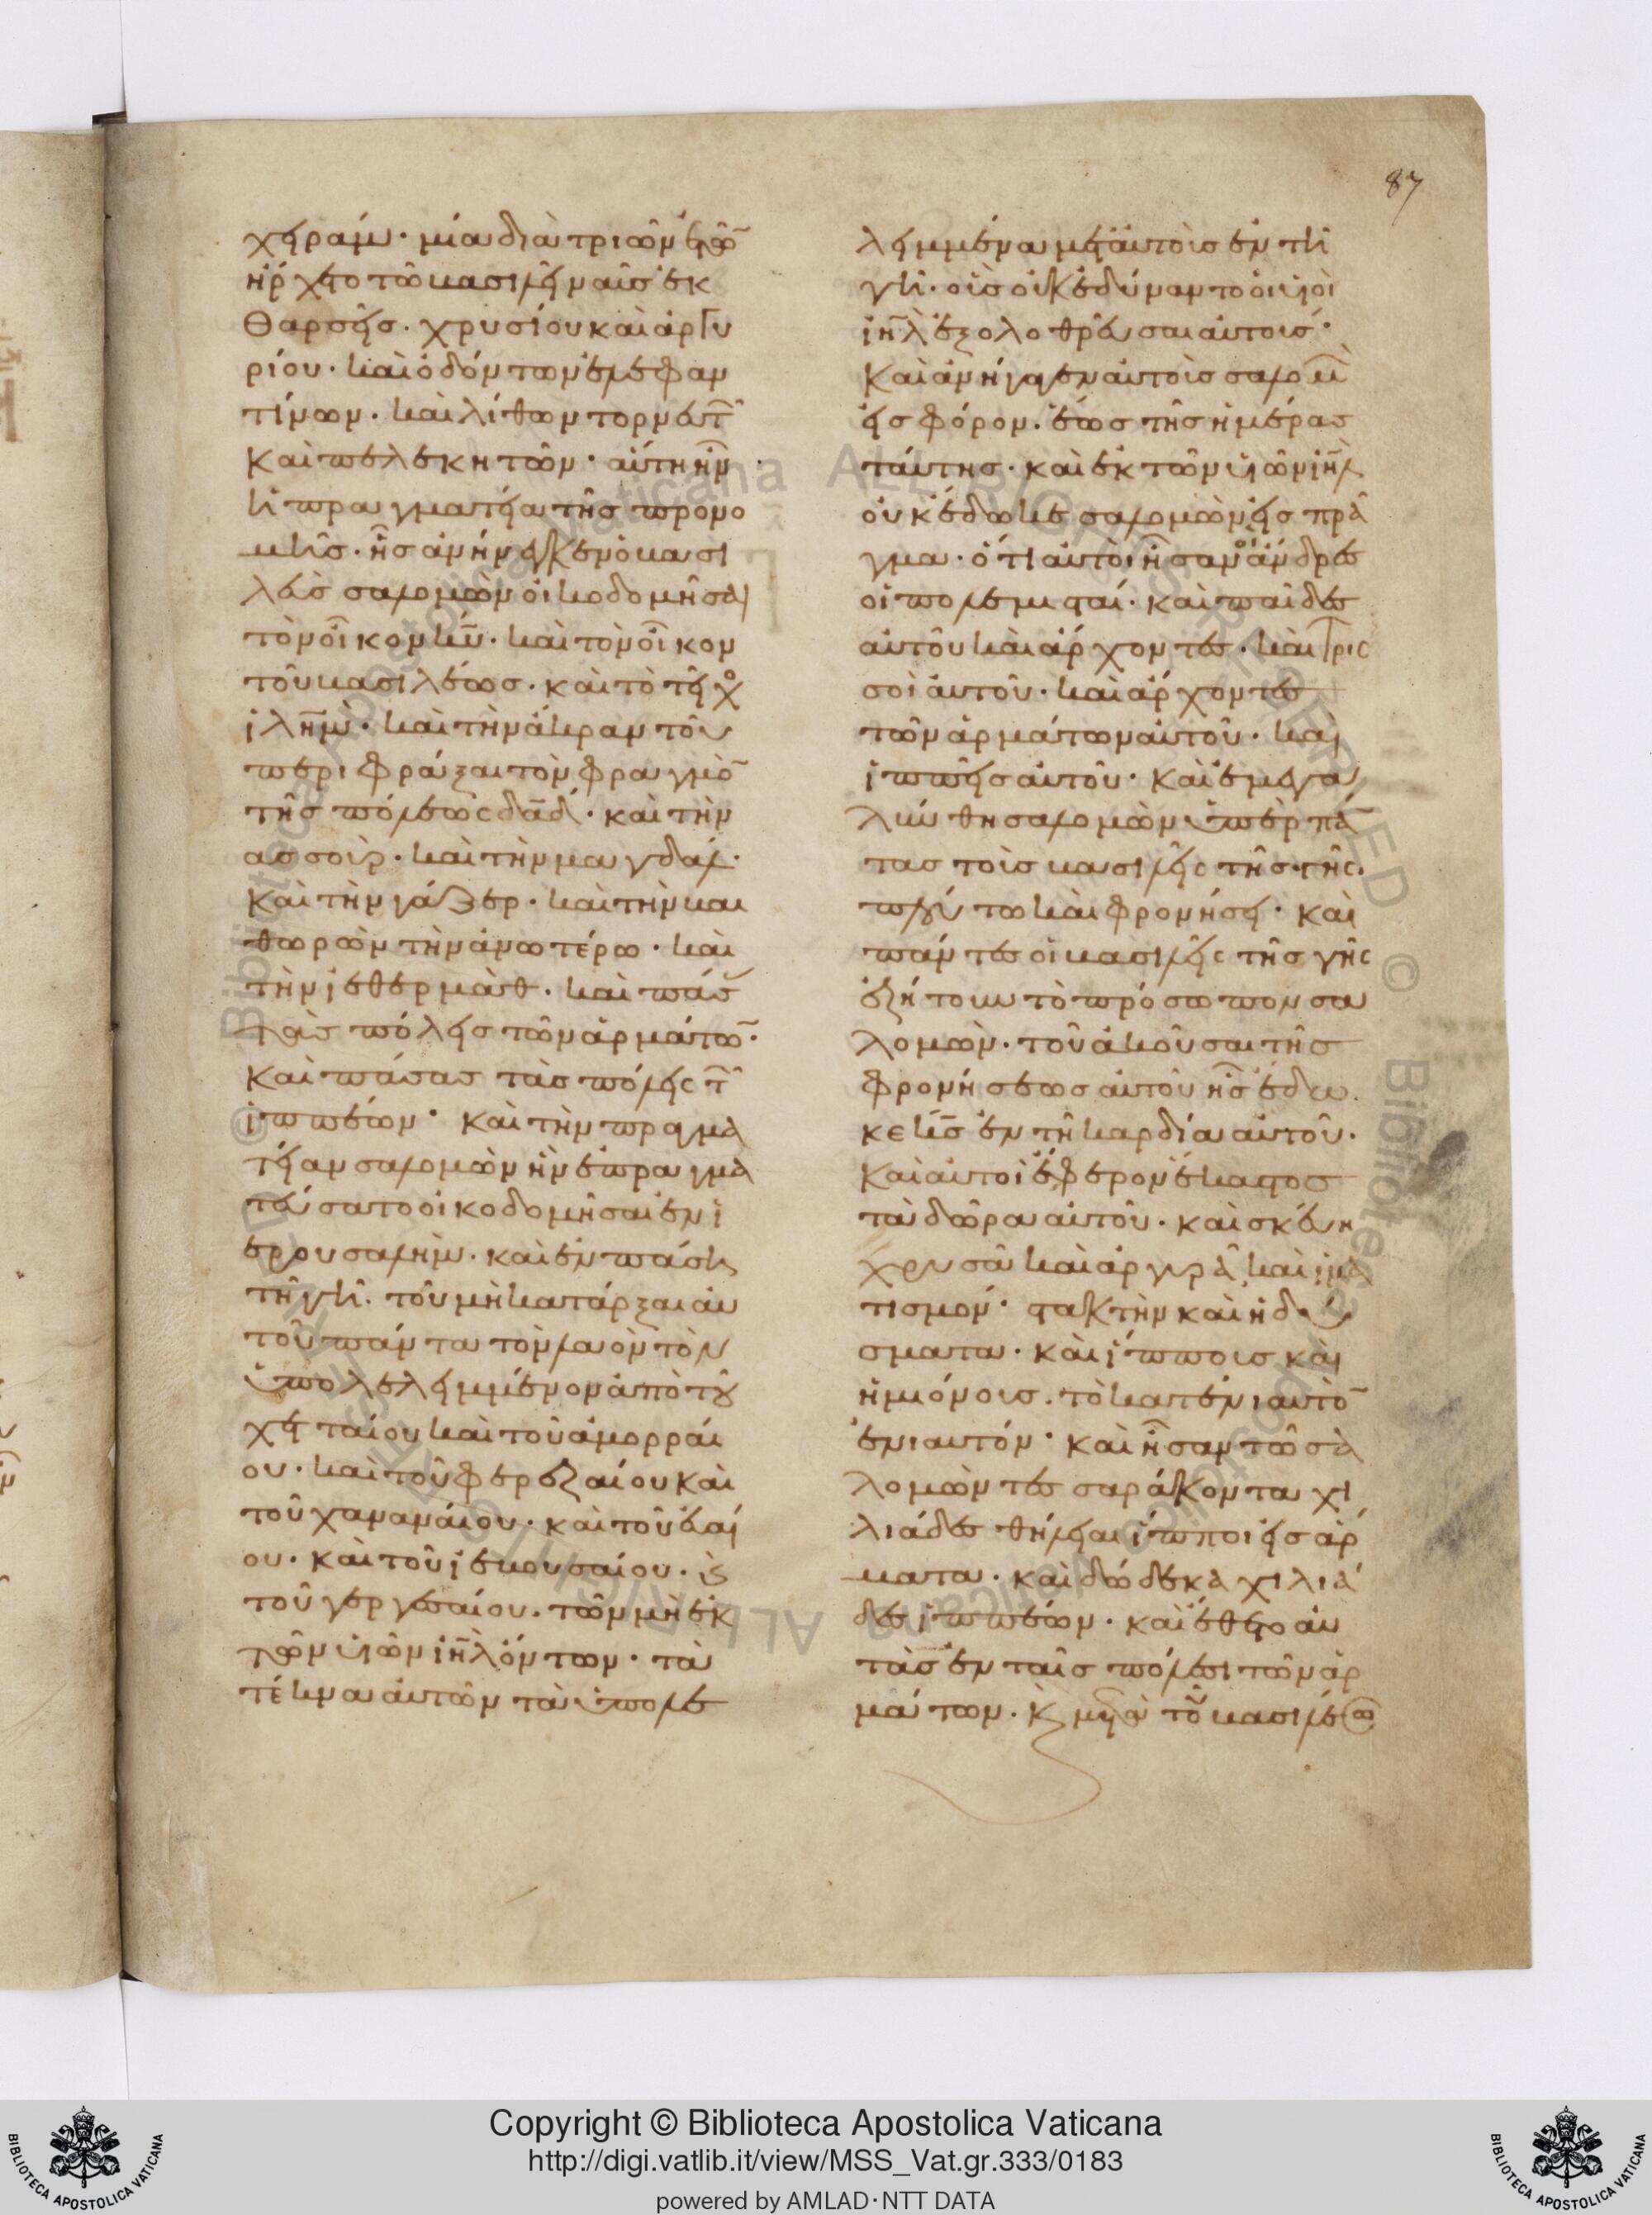 87
χειραμ· μία διὰ τριῶν ἐτῶ̄
ἤρχετο τῶ βασιλεῖ ναῦς ἐκ
Θαρσεῖς· χρυσίου καὶ ἀργυ
ρίου· καὶ ὀδόντων ἐλεφαν
τίνων· καὶ λίθων τορνευτ͂
Καὶ πελεκητῶν· αὕτη ἦν
ἡ πραγματεία τῆς προνο
μῆς· ἧς ἀνήνεγκεν ὁ βασι
λεὺς σαλομὼν οἰκοδομῆσαι
τὸν οἶκον κ̅υ̅· καὶ τὸν οἶκον
τοῦ βασιλέως· καὶ τὸ τεῖχο
ἰλ̅η̅μ̅· καὶ τὴν ἄκραν τοῦ
περιφράξαι τὸν φραγμὸ̄
τῆς πόλεως δα̅δ· καὶ τὴν
ασσοὺρ· καὶ τὴν μαγδαλ·
Καὶ τὴν γάζερ· καὶ τὴν βαι
θωρὼν τὴν ἀνωτέρω· καὶ
τὴν ἰεθερμὰθ· καὶ πάσ
τὰς πόλεις τῶν ἁρμάτω̄·
Καὶ πάσας τὰς πόλεις τ͂
ἱππέων· καὶ τὴν πραγμα
τείαν σαλομὼν ἣν ἐπραγμα
τεύσατο οἰκοδομῆσαι ἐν ἱ
ερουσαλὴμ· καὶ ἐν πάση
τῆ γῆ· τοῦ μὴ κατάρξαι αὐ
τοῦ πάντα τὸν λαὸν τὸν
ὑπολελειμμένον ἀπὸ τοῦ
χετταίου καὶ τοῦ ἀμορραί
ου· καὶ τοῦ φερεζαίου καὶ
τοῦ χαναναίου· καὶ τοῦ εὐαί
ου· καὶ τοῦ ἰεβουσαίου· κ̀
τοῦ γεργεσαίου· τῶν μὴ ἐκ
τῶν υἱῶν ι̅η̅λ̅ ὄντων· τὰ
τέκνα αὐτῶν τὰ ὑπολε
λειμμένα μετ' αὐτοὺς ἐν τῆ
γῆ· οὓς οὐκ ἐδύναντο οἱ υἱοὶ
ι̅η̅λ̅ ἐξολοθρεῦσαι αὐτούς·
Καὶ ἀνήγαγεν αὐτοὺς σαλομὼ̄
εἰς φόρον· ἕως τῆς ἡμέρας
ταύτης· καὶ ἐκ τῶν υἱῶν ι̅η̅λ̅
οὐκ ἔδωκε σαλομὼν εἰς πρᾶ
γμα· ὅτι αὐτοὶ ἦσαν ἄνδρες
οἱ πολεμισταί· καὶ παῖδες
αὐτοῦ καὶ ἄρχοντες· καὶ τρισ
σοὶ αὐτοῦ· καὶ ἄρχοντες
τῶν ἁρμάτων αὐτοῦ· καὶ
ἱππεῖς αὐτοῦ· καὶ ἐμεγα
λύνθη σαλομὼν ὑπὲρ πά̄
τας τοὺς βασιλεῖς τῆς γῆς.
πλούτω καὶ φρονήσει· καὶ
πάντες οἱ βασιλεῖς τῆς γῆς
ἐζήτουν τὸ πρόσωπον σα
λομὼν· τοῦ ἀκοῦσαι τῆς
φρονήσεως αὐτοῦ ἧς ἔδω
κε κ̅ς̅ ἐν τῆ καρδία αὐτοῦ·
Καὶ αὐτοὶ ἔφερον ἕκαστος
τὰ δῶρα αὐτοῦ· καὶ σκεύη
χρυσᾶ καὶ ἀργυρᾶ, καὶ ἱμα
τισμόν· στακτὴν καὶ ἡδύ
σματα· καὶ ἵππους καὶ
ἡμιόνους· τὸ κατ' ἐνιαυτὸ̄
ἐνιαυτόν· καὶ ἦσαν τῶ σα
λομὼν τεσσαράκοντα χι
λιάδες θήλειαι ἵπποι εἰς ἅρ
ματα· καὶ δώδεκα χιλιά
δες ἱππέων· καὶ ἔθετο αὐ
τὰς ἐν ταῖς πόλεσι τῶν ἁρ
μάτων· κ̀ μετὰ τοῦ βασιλέω
Copyright © Biblioteca Apostolica Vaticana
http://digi.vatlib.it/view/MSS_Vat.gr.333/0183
powered by AMLAD·NTT DATA
BIBLIOTECA APOSTOLICA VATICANA
BIBLIOTECA APOSTOLICA VATICANA